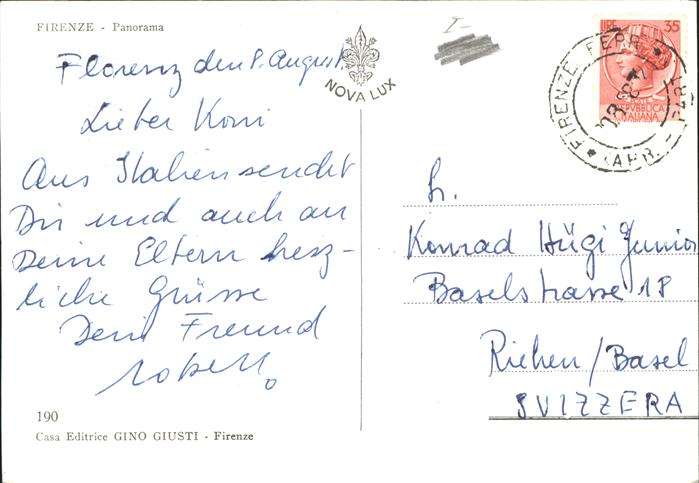 FIRENZE - Panorama
Florenz den 8. August.
Lieber Koni
Aus Italien sendet
Dir und auch an
Deine Eltern herz-
liche Grüsse
Dein Freund
Robert.
190
Casa Editrice GINO GIUSTI - Firenze
NOVA LUX
I-
LIRE 35
REPUBBLICA
ITALIANA
FIRENZE FERR.
ARR.
h.
Konrad Hügi Junior
Baselstrasse 18
Riehen/Basel
SVIZZERA